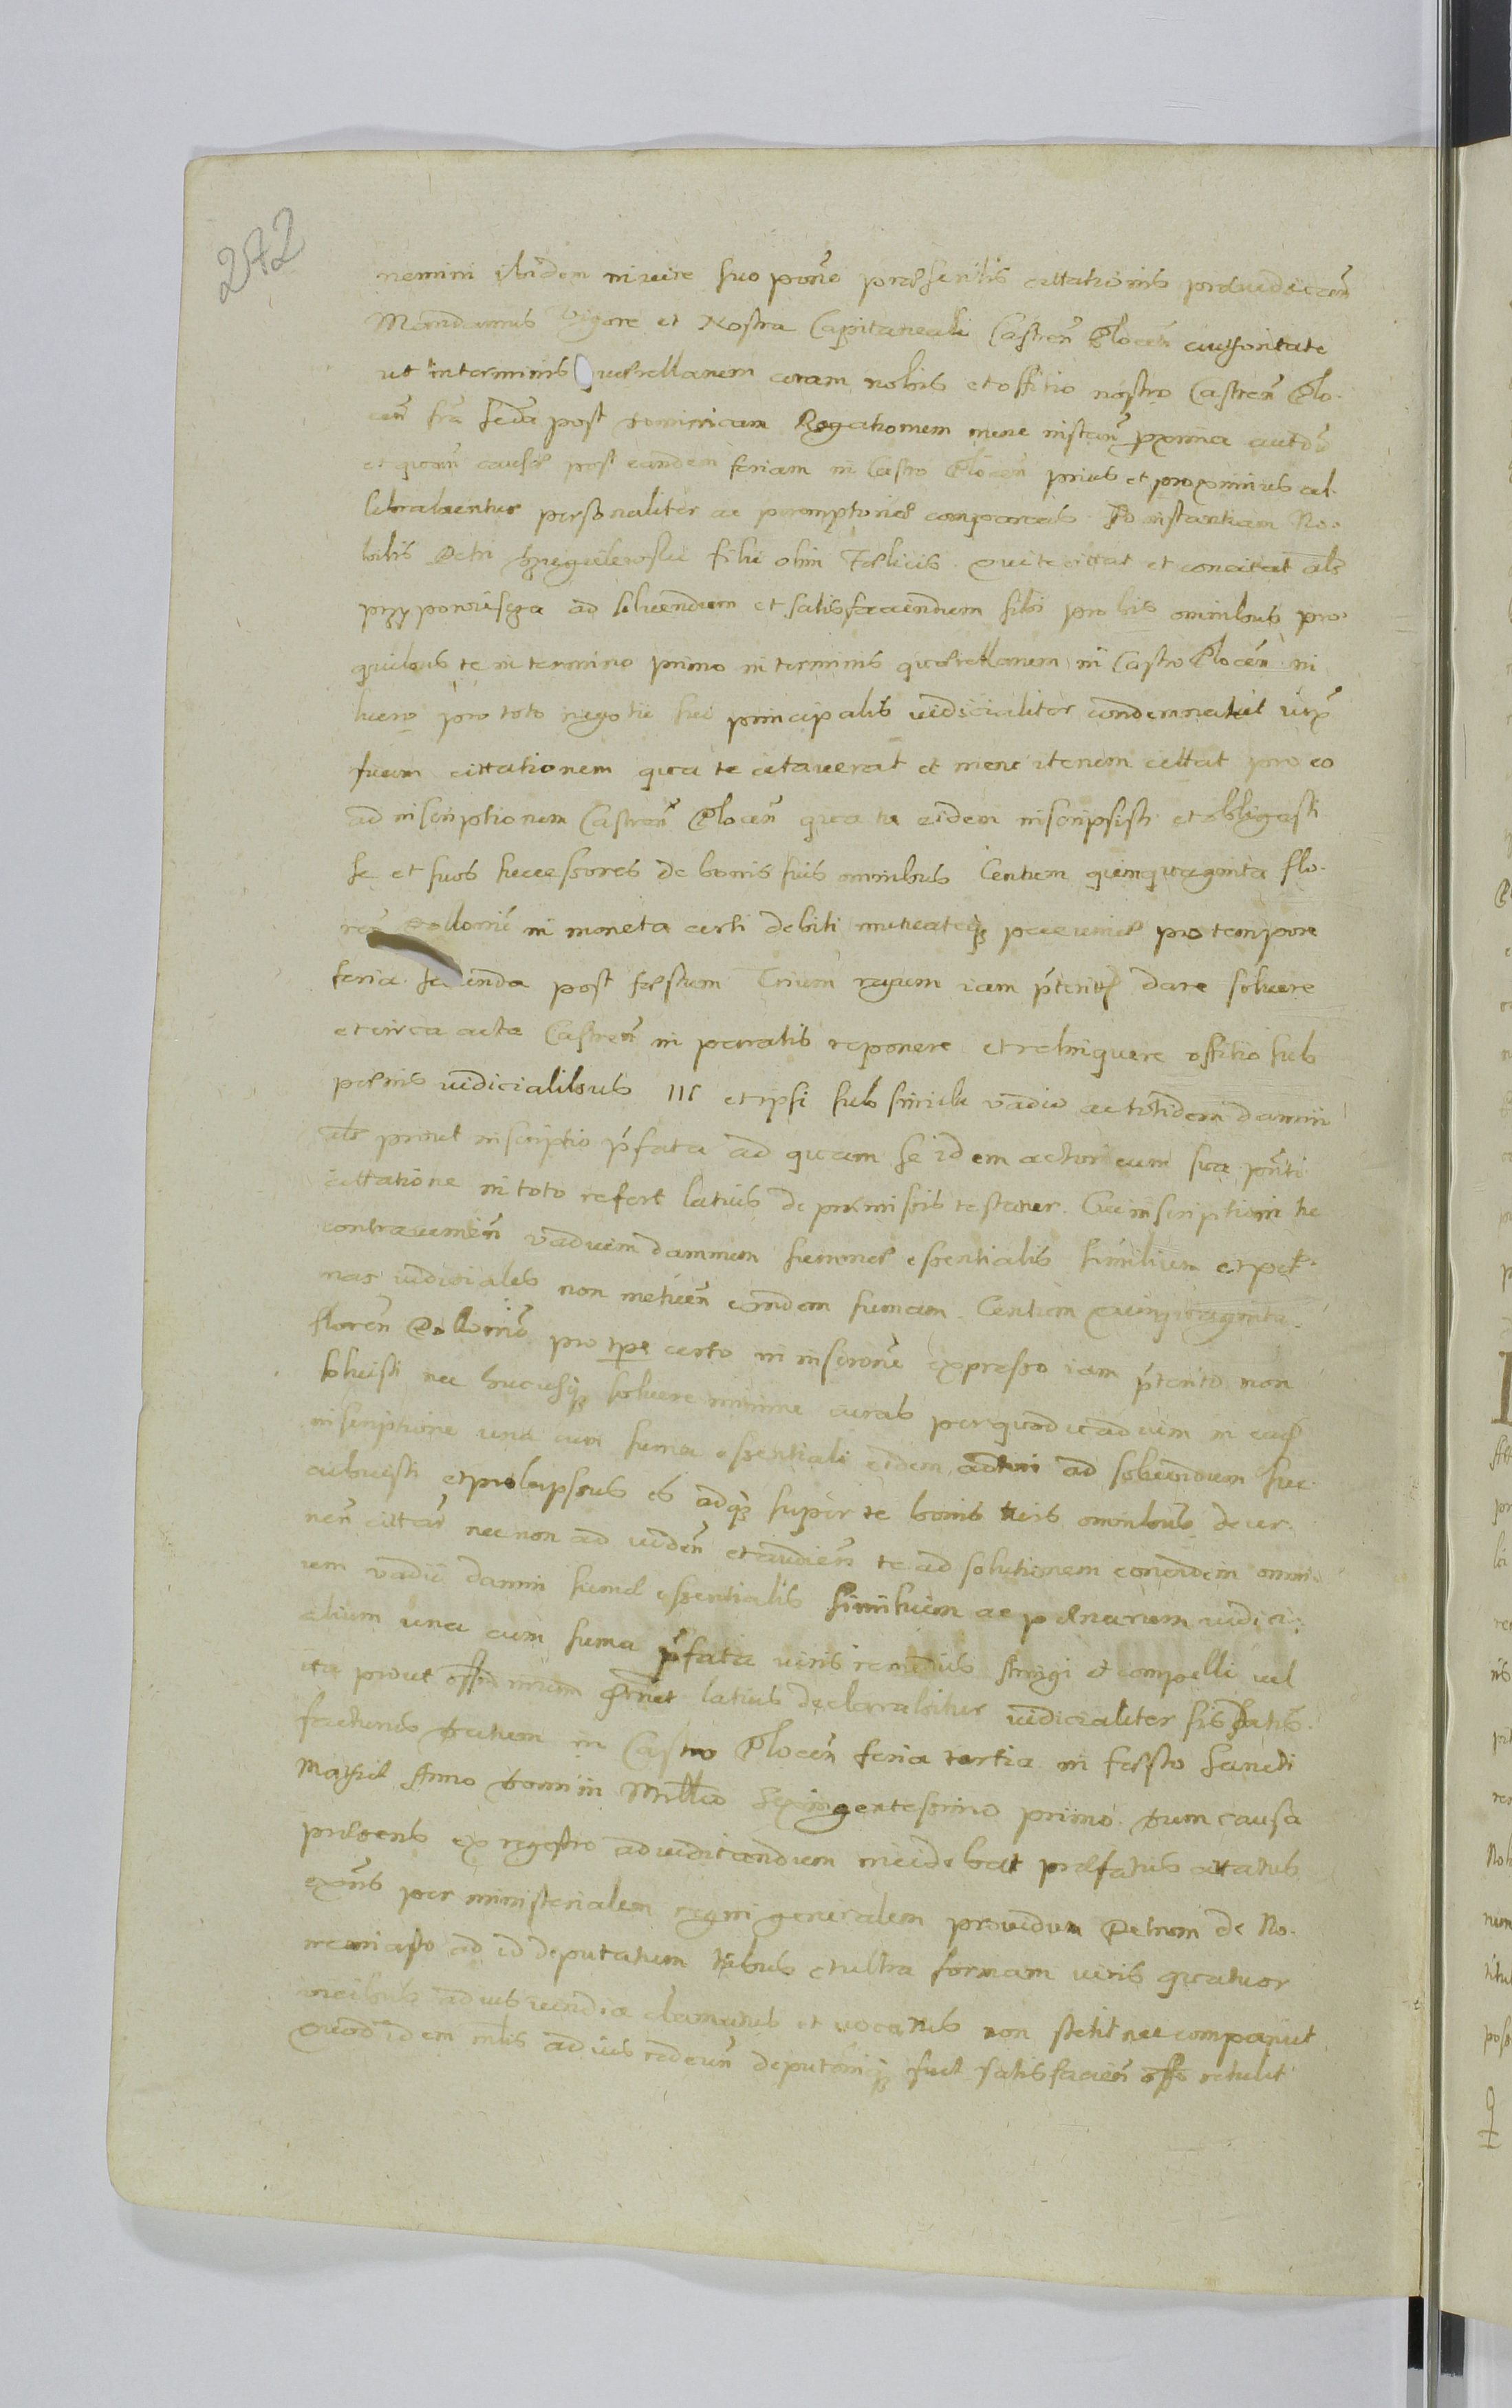 272
nemini ibidem in iure suo pone praesentis cittationis praeiudicen
Mandamus Vigore et Nostra Capitaneali Castren Plocen authoritate
ut in terminis Querellarum coram nobis et offitio nostro Castren Plo-
cen fra secda post dominicam Rogationem nunc instan pxima
et quan causae post eandem feriam in Castro Plocen prius et proximius cel-
lebrabuntur personaliter ac peremptoriae compareas Ad instantiam No-
bilis Petri filii olim Felicis qui te cittat et concitat als
przyponviescza ad soluendum et satisfaciendum sibi pro his omnibus pro
quibus te in termino primo in terminis querellarum in Castro Plocen in
lucro pro toto negotii sui principalis iudicialiter condemnavit iux
suam cittationem qua te citaverat et nunc iterum cittat pro eo
ad inscriptionem Castren Plocen qua tu eidem inscripsisti et obligasti
se et suos successores de bonis suis omnibus Centum quinquaginta flo-
ren Pollonic in moneta certi debiti mutuateq pecuniae pro tempore
feria secunda post festum Trium regum iam pterito dare soluere
et circa acta Castren in paratis reponere et relinquere offitio sub
poenis iudicialibus III et ipsi sub simili vadio ac totidem damni
als prout inscriptio pfata ad quam se idem actor cum sua pnti
cittatione in toto refert latius de praemissis testatur. Cui inscriptioni tu
contraveniен vadium damnum summae essentialis similium et poe-
nas iudiciales non metuen eandem sumam Centum Quinquaginta
floren Polloric pro tpe certo in inscrone expresso iam pterito non
soluisti nec hucusq soluere minime curas per quod vadium in ead
inscriptione una cum suma essentiali eidem actori ad soluendum suc-
cubuisti et prolapsus es adq super te bonis tuis omnibus decer-
nen cittaris necnon ad viden et audien te ad solutionem eorundem omni-
um vadii damni sumae essentialis similium ac poenarum iudici-
alium una cum suma pfata iuris remediis stringi et compelli vel
ita prout latius declarabitur iudicialiter sis satis-
facturus Datum in Castro Plocen feria tertia in festo Sancti
Mathiae Anno Domini Millmo Sexingentesimo primo. Dum causa
praesens ex regestro ad iudicandum incidebat praefatus cittatus
exns per ministerialem regni generalem providum Petrum de No-
ad id deputatum tribus et ultra formam iuris quatuor
vicibus ad iudicia clamatus et vocatus non stetit nec comparuit
Quod idem mlis ad ius redeun satisfacien offo retulit